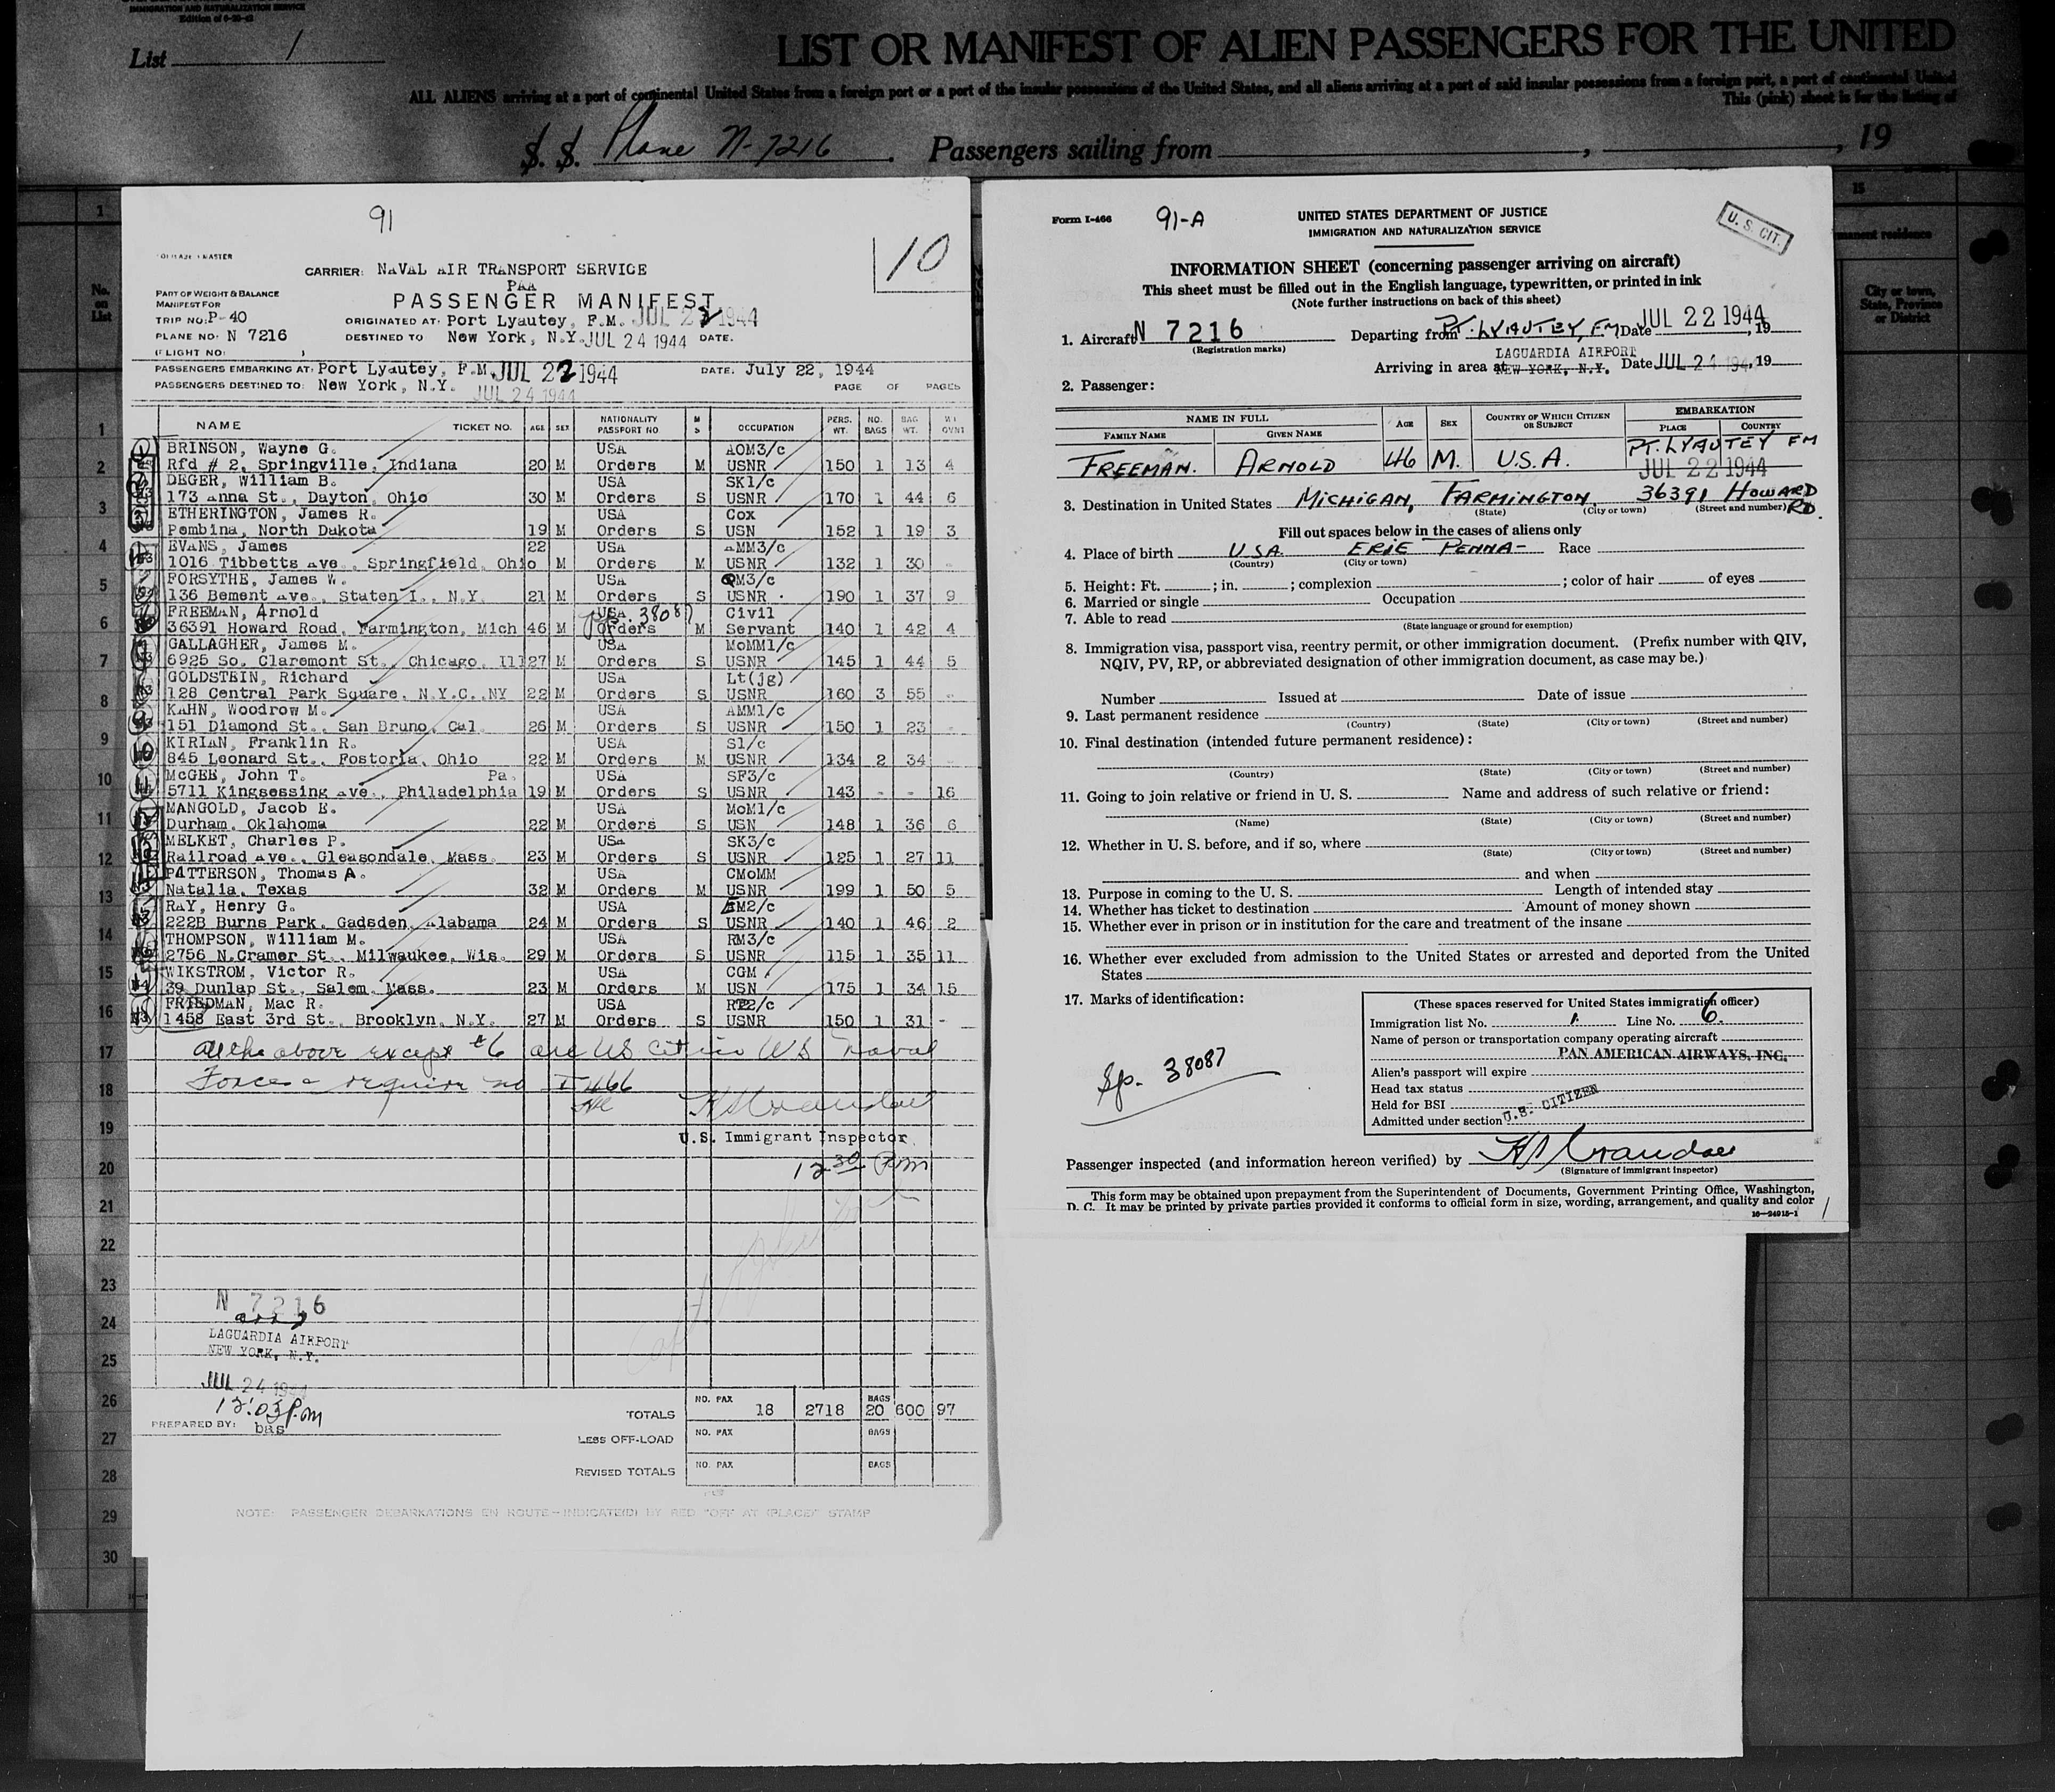 IMMIGRATION AND NATURALIZATION SERVICE
Edition of
List 1
LIST OR MANIFEST OF ALIEN PASSENGERS FOR THE UNITED
ALL ALIENS arriving at a port of continental United States from a foreign port or a port of the insular possessions of the United States, and all aliens arriving at a port of said insular possessions from a foreign port, a port of continental United
This (pink) sheet is for the listing of
S. S. Plane N-7216 . Passengers sailing from , , 19
91
10
MASTER
CARRIER: NAVAL AIR TRANSPORT SERVICE
PAA
PART OF WEIGHT & BALANCE
MANIFEST FOR
PASSENGER MANIFEST
TRIP NO: P-40
ORIGINATED AT: Port Lyautey, F.M. JUL 22 1944
PLANE NO: N 7216
DESTINED TO New York, N.Y. JUL 24 1944 DATE.
(FLIGHT NO: )
PASSENGERS EMBARKING AT: Port Lyautey, F.M. JUL 22 1944 DATE: July 22, 1944
PASSENGERS DESTINED TO: New York, N.Y. JUL 24 1944 PAGE OF PAGES
NAME TICKET NO. AGE SEX NATIONALITY PASSPORT NO. M S OCCUPATION PERS. WT. NO. BAGS BAG WT. WT GVMT
BRINSON, Wayne G. USA AOM3/c
Rfd # 2, Springville, Indiana 20 M Orders M USNR 150 1 13 4
DEGER, William B. USA SK1/c
173 Anna St., Dayton, Ohio 30 M Orders S USNR 170 1 44 6
ETHERINGTON, James R. USA Cox
Pembina, North Dakota 19 M Orders S USN 152 1 19 3
EVANS, James 22 USA AMM3/c
1016 Tibbetts Ave., Springfield, Ohio M Orders M USNR 132 1 30 -
FORSYTHE, James W. USA QM3/c
136 Bement Ave., Staten I., N.Y. 21 M Orders S USNR 190 1 37 9
FREEMAN, Arnold USA Sp. 38087 Civil
36391 Howard Road, Farmington, Mich 46 M Orders M Servant 140 1 42 4
GALLAGHER, James M. USA MoMM1/c
6925 So. Claremont St., Chicago, Ill 27 M Orders S USNR 145 1 44 5
GOLDSTEIN, Richard USA Lt(jg)
128 Central Park Square, N.Y.C., NY 22 M Orders S USNR 160 3 55 -
KAHN, Woodrow M. USA AMM1/c
151 Diamond St., San Bruno, Cal. 26 M Orders S USNR 150 1 23 -
KIRIAN, Franklin R. USA S1/c
845 Leonard St., Fostoria, Ohio 22 M Orders M USNR 134 2 34 -
McGEE, John T. Pa. USA SF3/c
5711 Kingsessing Ave., Philadelphia 19 M Orders S USNR 143 - - 16
MANGOLD, Jacob E. USA MoM1/c
Durham, Oklahoma 22 M Orders S USN 148 1 36 6
MELKET, Charles P. USA SK3/c
Railroad Ave., Gleasondale, Mass. 23 M Orders S USNR 125 1 27 11
PATTERSON, Thomas A. USA CMoMM
Natalia, Texas 32 M Orders M USNR 199 1 50 5
RAY, Henry G. USA EM2/c
222B Burns Park, Gadsden, Alabama 24 M Orders S USNR 140 1 46 2
THOMPSON, William M. USA RM3/c
2756 N.Cramer St., Milwaukee, Wis. 29 M Orders S USNR 115 1 35 11
WIKSTROM, Victor R. USA CGM
39 Dunlap St., Salem, Mass. 23 M Orders M USN 175 1 34 15
FRIEDMAN, Mac R. USA RT2/c
1458 East 3rd St., Brooklyn, N.Y. 27 M Orders S USNR 150 1 31 -
All the above except #6 are US Cit in US Naval
Forces & require no I 466
U.S. Immigrant Inspector
12 30 P.m
N 7216
LAGUARDIA AIRPORT
NEW YORK, N.Y.
JUL 24 1944
12:03 P.m
PREPARED BY: bas
TOTALS NO. PAX 18 2718 BAGS 20 600 97
LESS OFF-LOAD NO. PAX BAGS
REVISED TOTALS NO. PAX BAGS
NOTE: PASSENGER DEBARKATIONS EN ROUTE - INDICATE(D) BY RED "OFF AT (PLACE)" STAMP
No. on List
1
2
3
4
5
6
7
8
9
10
11
12
13
14
15
16
17
18
19
20
21
22
23
24
25
26
27
28
29
30
Form I-466
91-A
UNITED STATES DEPARTMENT OF JUSTICE
IMMIGRATION AND NATURALIZATION SERVICE
U. S. CIT.
INFORMATION SHEET (concerning passenger arriving on aircraft)
This sheet must be filled out in the English language, typewritten, or printed in ink
(Note further instructions on back of this sheet)
1. Aircraft N 7216 Departing from PT. LYAUTEY, FM Date JUL 22 1944, 19
(Registration marks)
LAGUARDIA AIRPORT
Arriving in area at NEW YORK, N.Y. Date JUL 24 194, 19
2. Passenger:
NAME IN FULL AGE SEX COUNTRY OF WHICH CITIZEN OR SUBJECT EMBARKATION
FAMILY NAME GIVEN NAME PLACE COUNTRY
FREEMAN. ARNOLD 46 M. U.S.A. PT. LYAUTEY FM
JUL 22 1944
3. Destination in United States MICHIGAN, FARMINGTON 36391 HOWARD RD.
(State) (City or town) (Street and number)
Fill out spaces below in the cases of aliens only
4. Place of birth USA. ERIE PENNA- Race
(Country) (City or town)
5. Height: Ft. ; in. ; complexion ; color of hair of eyes
6. Married or single Occupation
7. Able to read
(State language or ground for exemption)
8. Immigration visa, passport visa, reentry permit, or other immigration document. (Prefix number with QIV,
NQIV, PV, RP, or abbreviated designation of other immigration document, as case may be.)
Number Issued at Date of issue
9. Last permanent residence
(Country) (State) (City or town) (Street and number)
10. Final destination (intended future permanent residence):
(Country) (State) (City or town) (Street and number)
11. Going to join relative or friend in U. S. Name and address of such relative or friend:
(Name) (State) (City or town) (Street and number)
12. Whether in U. S. before, and if so, where
(State) (City or town) (Street and number)
and when
13. Purpose in coming to the U. S. Length of intended stay
14. Whether has ticket to destination Amount of money shown
15. Whether ever in prison or in institution for the care and treatment of the insane
16. Whether ever excluded from admission to the United States or arrested and deported from the United
States
17. Marks of identification:
Sp. 38087
(These spaces reserved for United States immigration officer)
Immigration list No. 1. Line No. 6.
Name of person or transportation company operating aircraft
PAN AMERICAN AIRWAYS, INC.
Alien's passport will expire
Head tax status
Held for BSI
Admitted under section U.S. CITIZEN
Passenger inspected (and information hereon verified) by
(Signature of immigrant inspector)
This form may be obtained upon prepayment from the Superintendent of Documents, Government Printing Office, Washington,
D. C. It may be printed by private parties provided it conforms to official form in size, wording, arrangement, and quality and color
16-24915-1
15
manent residence
City or town, State, Province or District